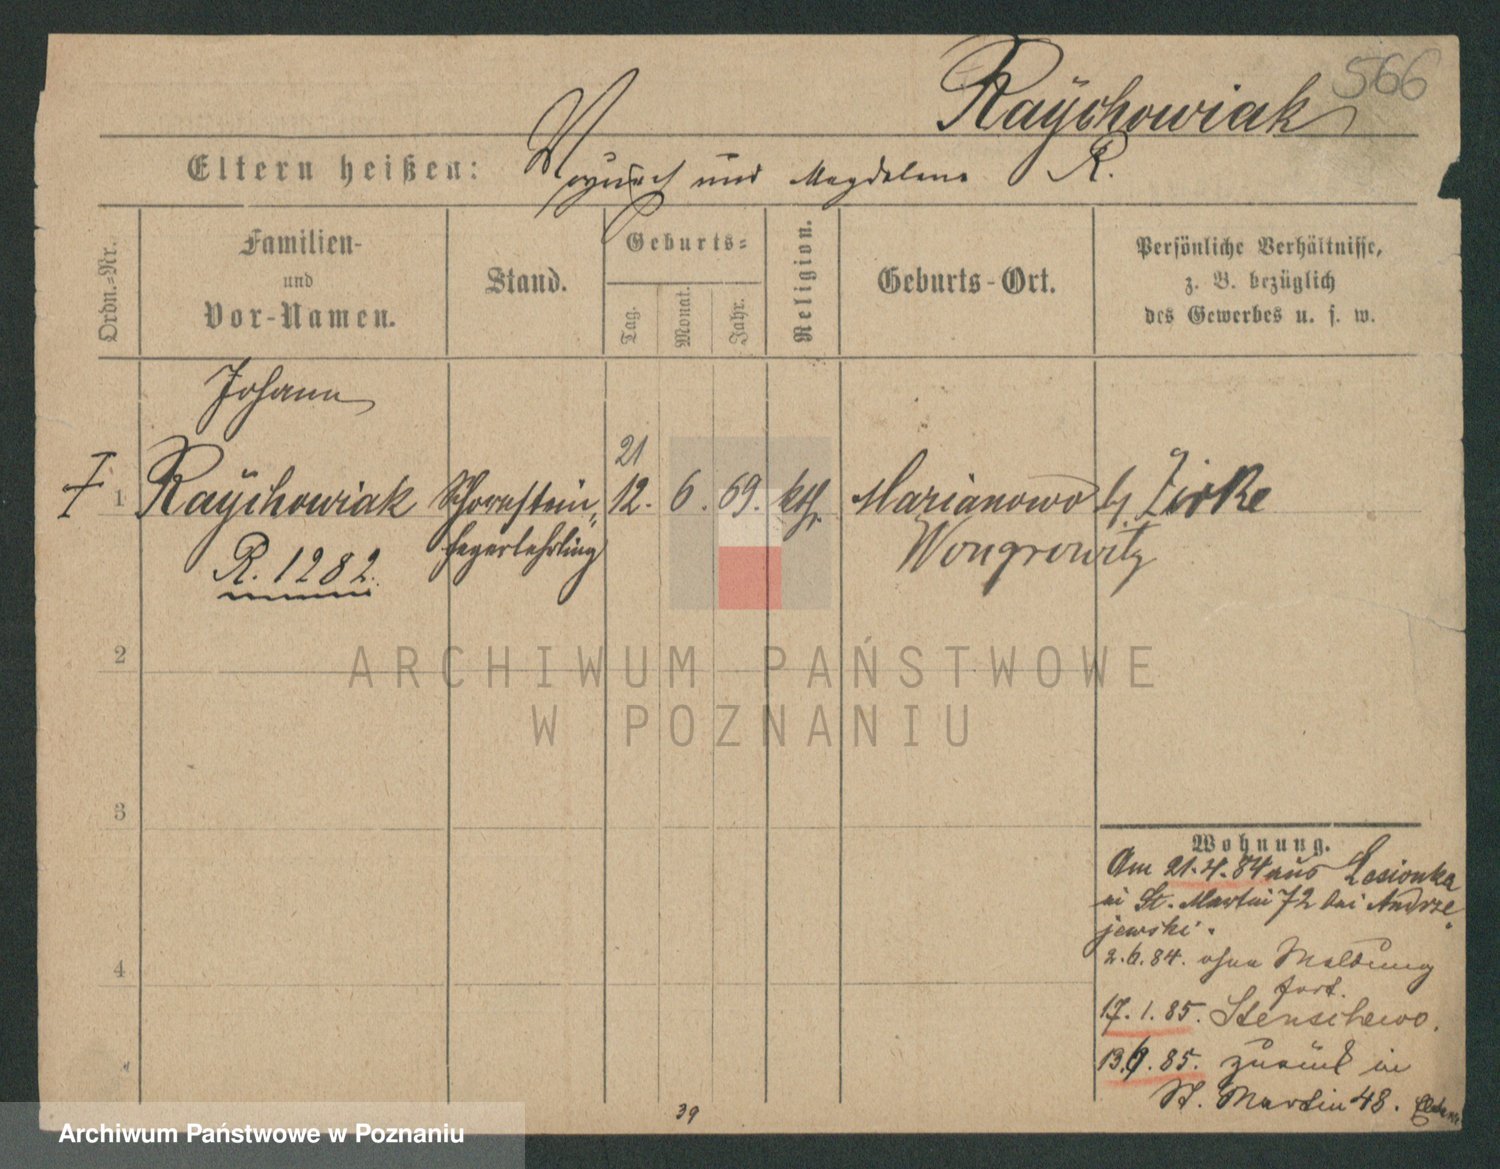 566
Raÿchowiak
Eltern heißen: und Magdalena R.
Ordn.-Nr.
Familien-
und
Vor-Namen.
Stand.
Geburts-
Tag.
Monat.
Jahr.
Religion.
Geburts-Ort.
Persönliche Verhältnisse,
z. B. bezüglich
des Gewerbes u. s. w.
Johann
21
1 Raÿchowiak Schornstein- 12. 6. 69. kth. Marianowo b/ Zirke
fegerlehrling Wongrowitz
R. 1282.
2
ARCHIWUM PAŃSTWOWE
W POZNANIU
3
Wohnung.
Am 21.4.84 aus Lesionka
in St. Martin 72 bei Andrze-
jewski.
4
2.6.84. ohne Meldung
fort.
17.1.85. Stenschewo.
13.9.85. zurück in
St. Martin 48.
39
Archiwum Państwowe w Poznaniu